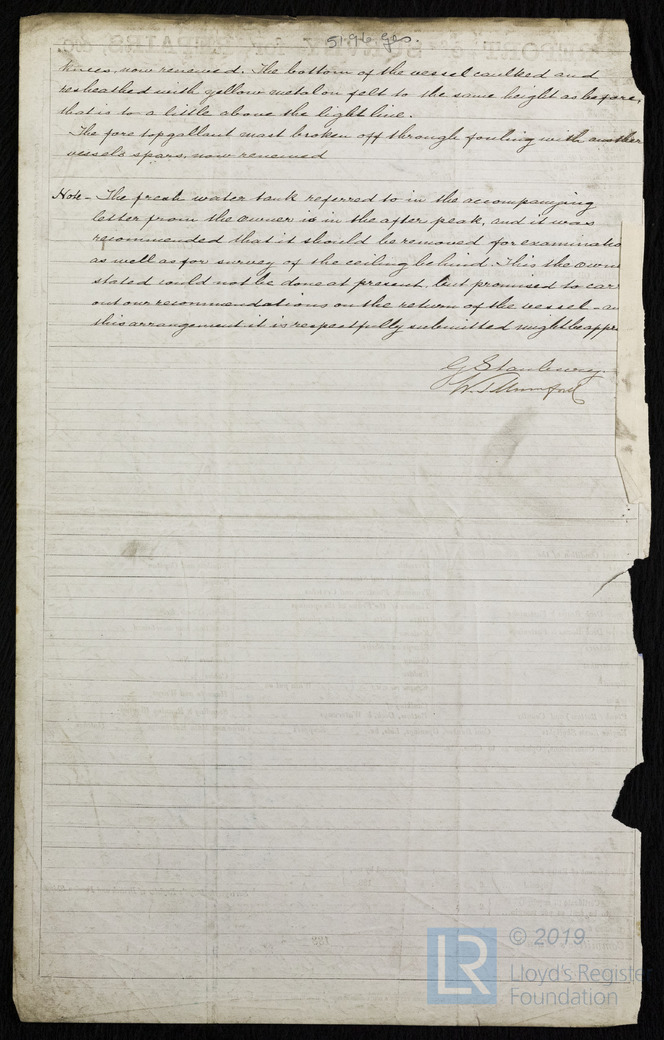 5196 Ges.
knees, now renewed. The bottom of the vessel caulked and
resheathed with yellow metal on felt to the same height as before,
that is to a little above the light line.
The fore topgallant mast broken off through fouling with another
vessels spars, now renewed
Note - The fresh water tank referred to in the accompanying
letter from the owner is in the after peak, and it was
recommended that it should be removed for examinatio
as well as for survey of the ceiling behind. This the own
stated could not be done at present, but promised to car
out our recommendations on the return of the vessel - an
this arrangement it is respectfully submitted might be appr
G Stanbury
© 2019
LR
Lloyd's Register
Foundation